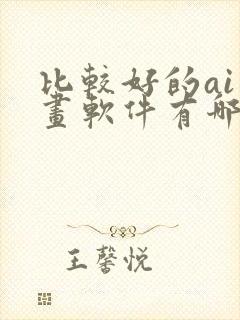 比較好的ai
畫軟件有哪
王馨悦